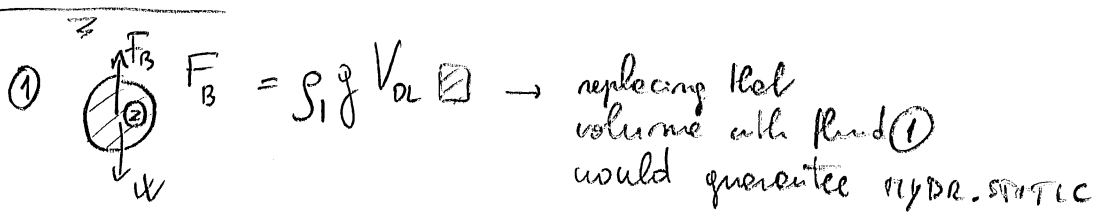 ① F_B ② W F_B = ρ₁ g V_OL → replacing that
volume with fluid ①
would guarantee HYDR. STATIC